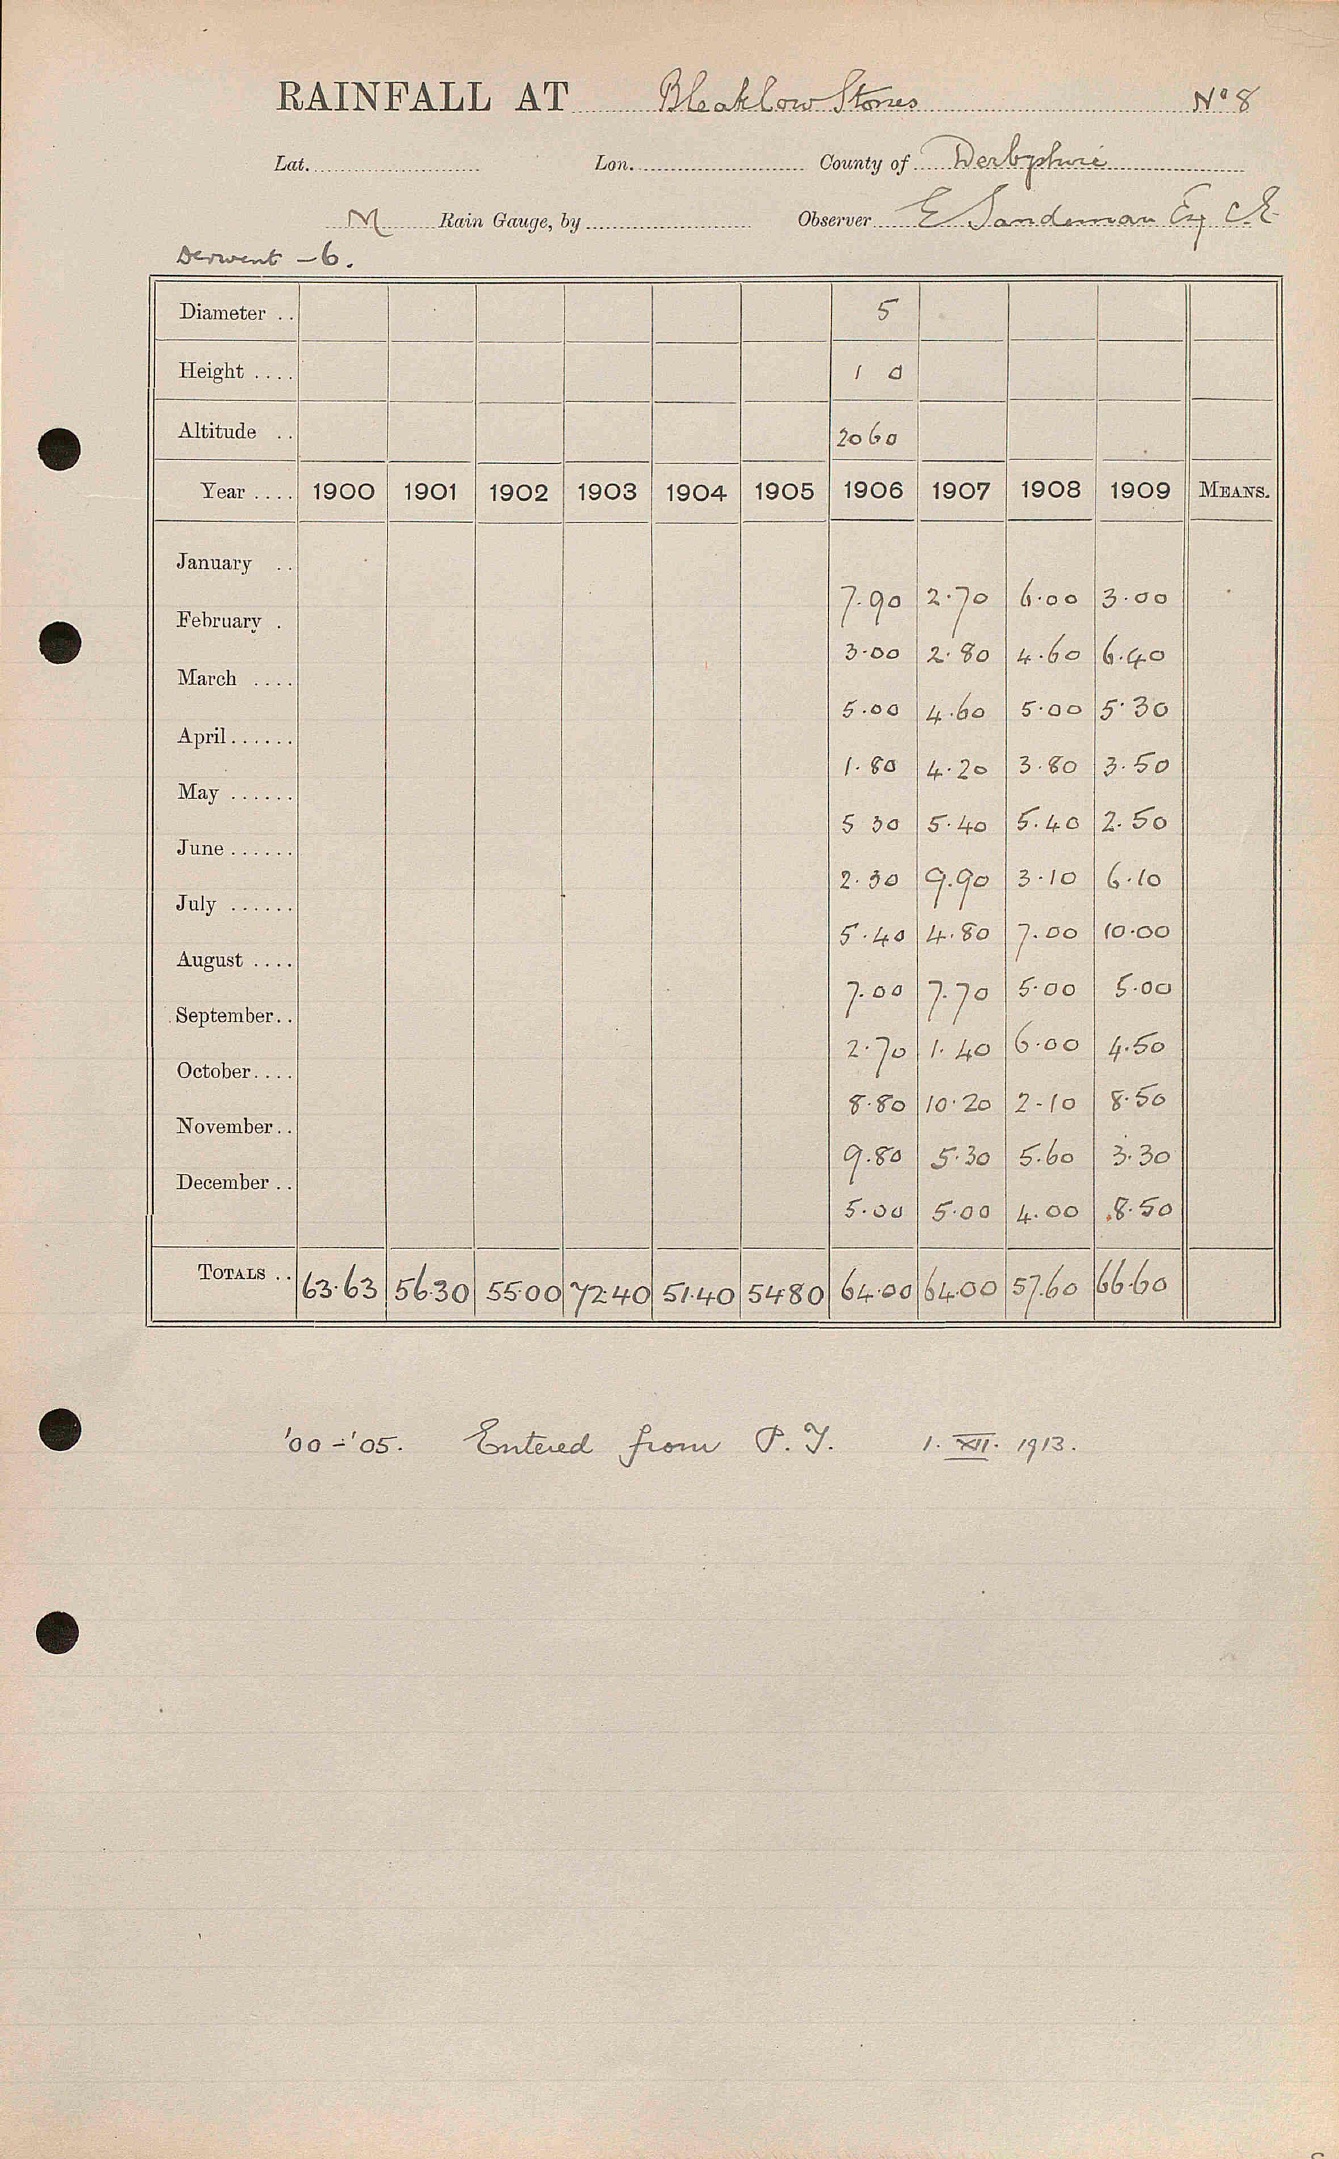 RAINFALL AT Bleaklow Stones No 8
Lat. Lon. County of Derbyshire
M Rain Gauge, by Observer E Sandeman Esq C.E.
Derwent - 6.
Diameter .. 5
Height .... 1 0
Altitude .. 2060
Year .... 1900 1901 1902 1903 1904 1905 1906 1907 1908 1909 MEANS.
January .. 7.90 2.70 6.00 3.00
February . 3.00 2.80 4.60 6.40
March .... 5.00 4.60 5.00 5.30
April...... 1.80 4.20 3.80 3.50
May ...... 5 30 5.40 5.40 2.50
June...... 2.30 9.90 3.10 6.10
July ...... 5.40 4.80 7.00 10.00
August .... 7.00 7.70 5.00 5.00
September.. 2.70 1.40 6.00 4.50
October.... 8.80 10.20 2-10 8.50
November.. 9.80 5.30 5.60 3.30
December .. 5.00 5.00 4.00 8.50
TOTALS .. 63.63 56.30 55.00 72.40 51.40 54.80 64.00 64.00 57.60 66.60
'00-'05. Entered from P.T. 1. XII. 1913.